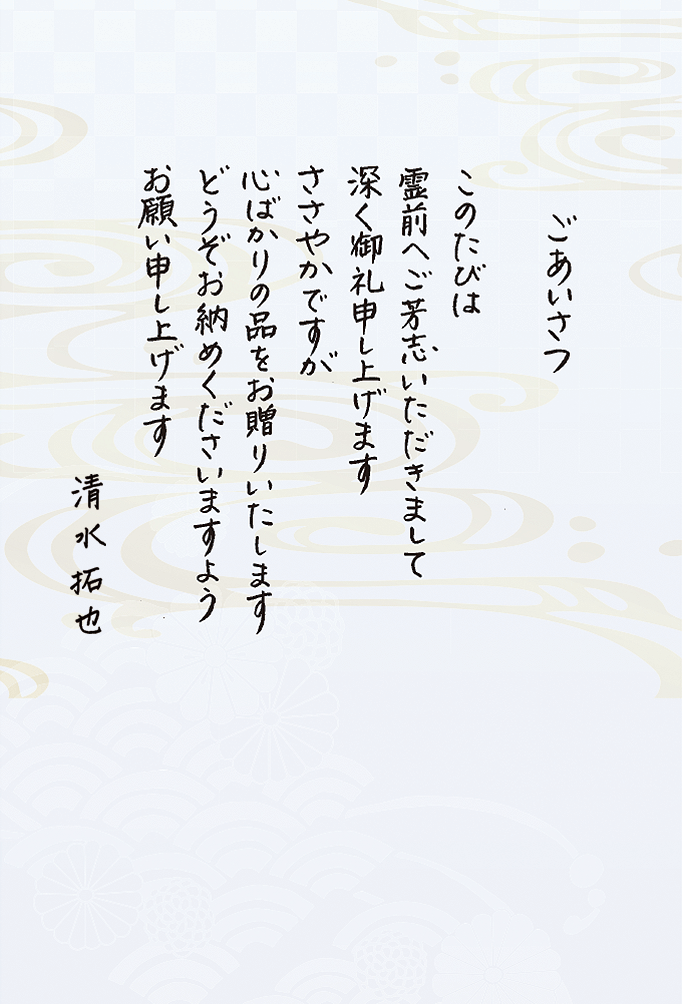 ごあいさつ
このたびは
霊前へご芳志いただきまして
深く御礼申し上げます
ささやかですが
心ばかりの品をお贈りいたします
どうぞお納めくださいますよう
お願い申し上げます
清水拓也